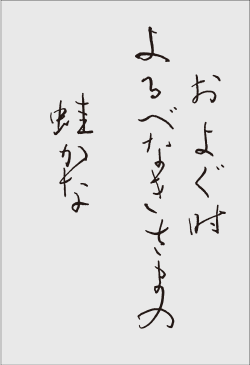 およぐ時
よるべなきさまの
蛙かな